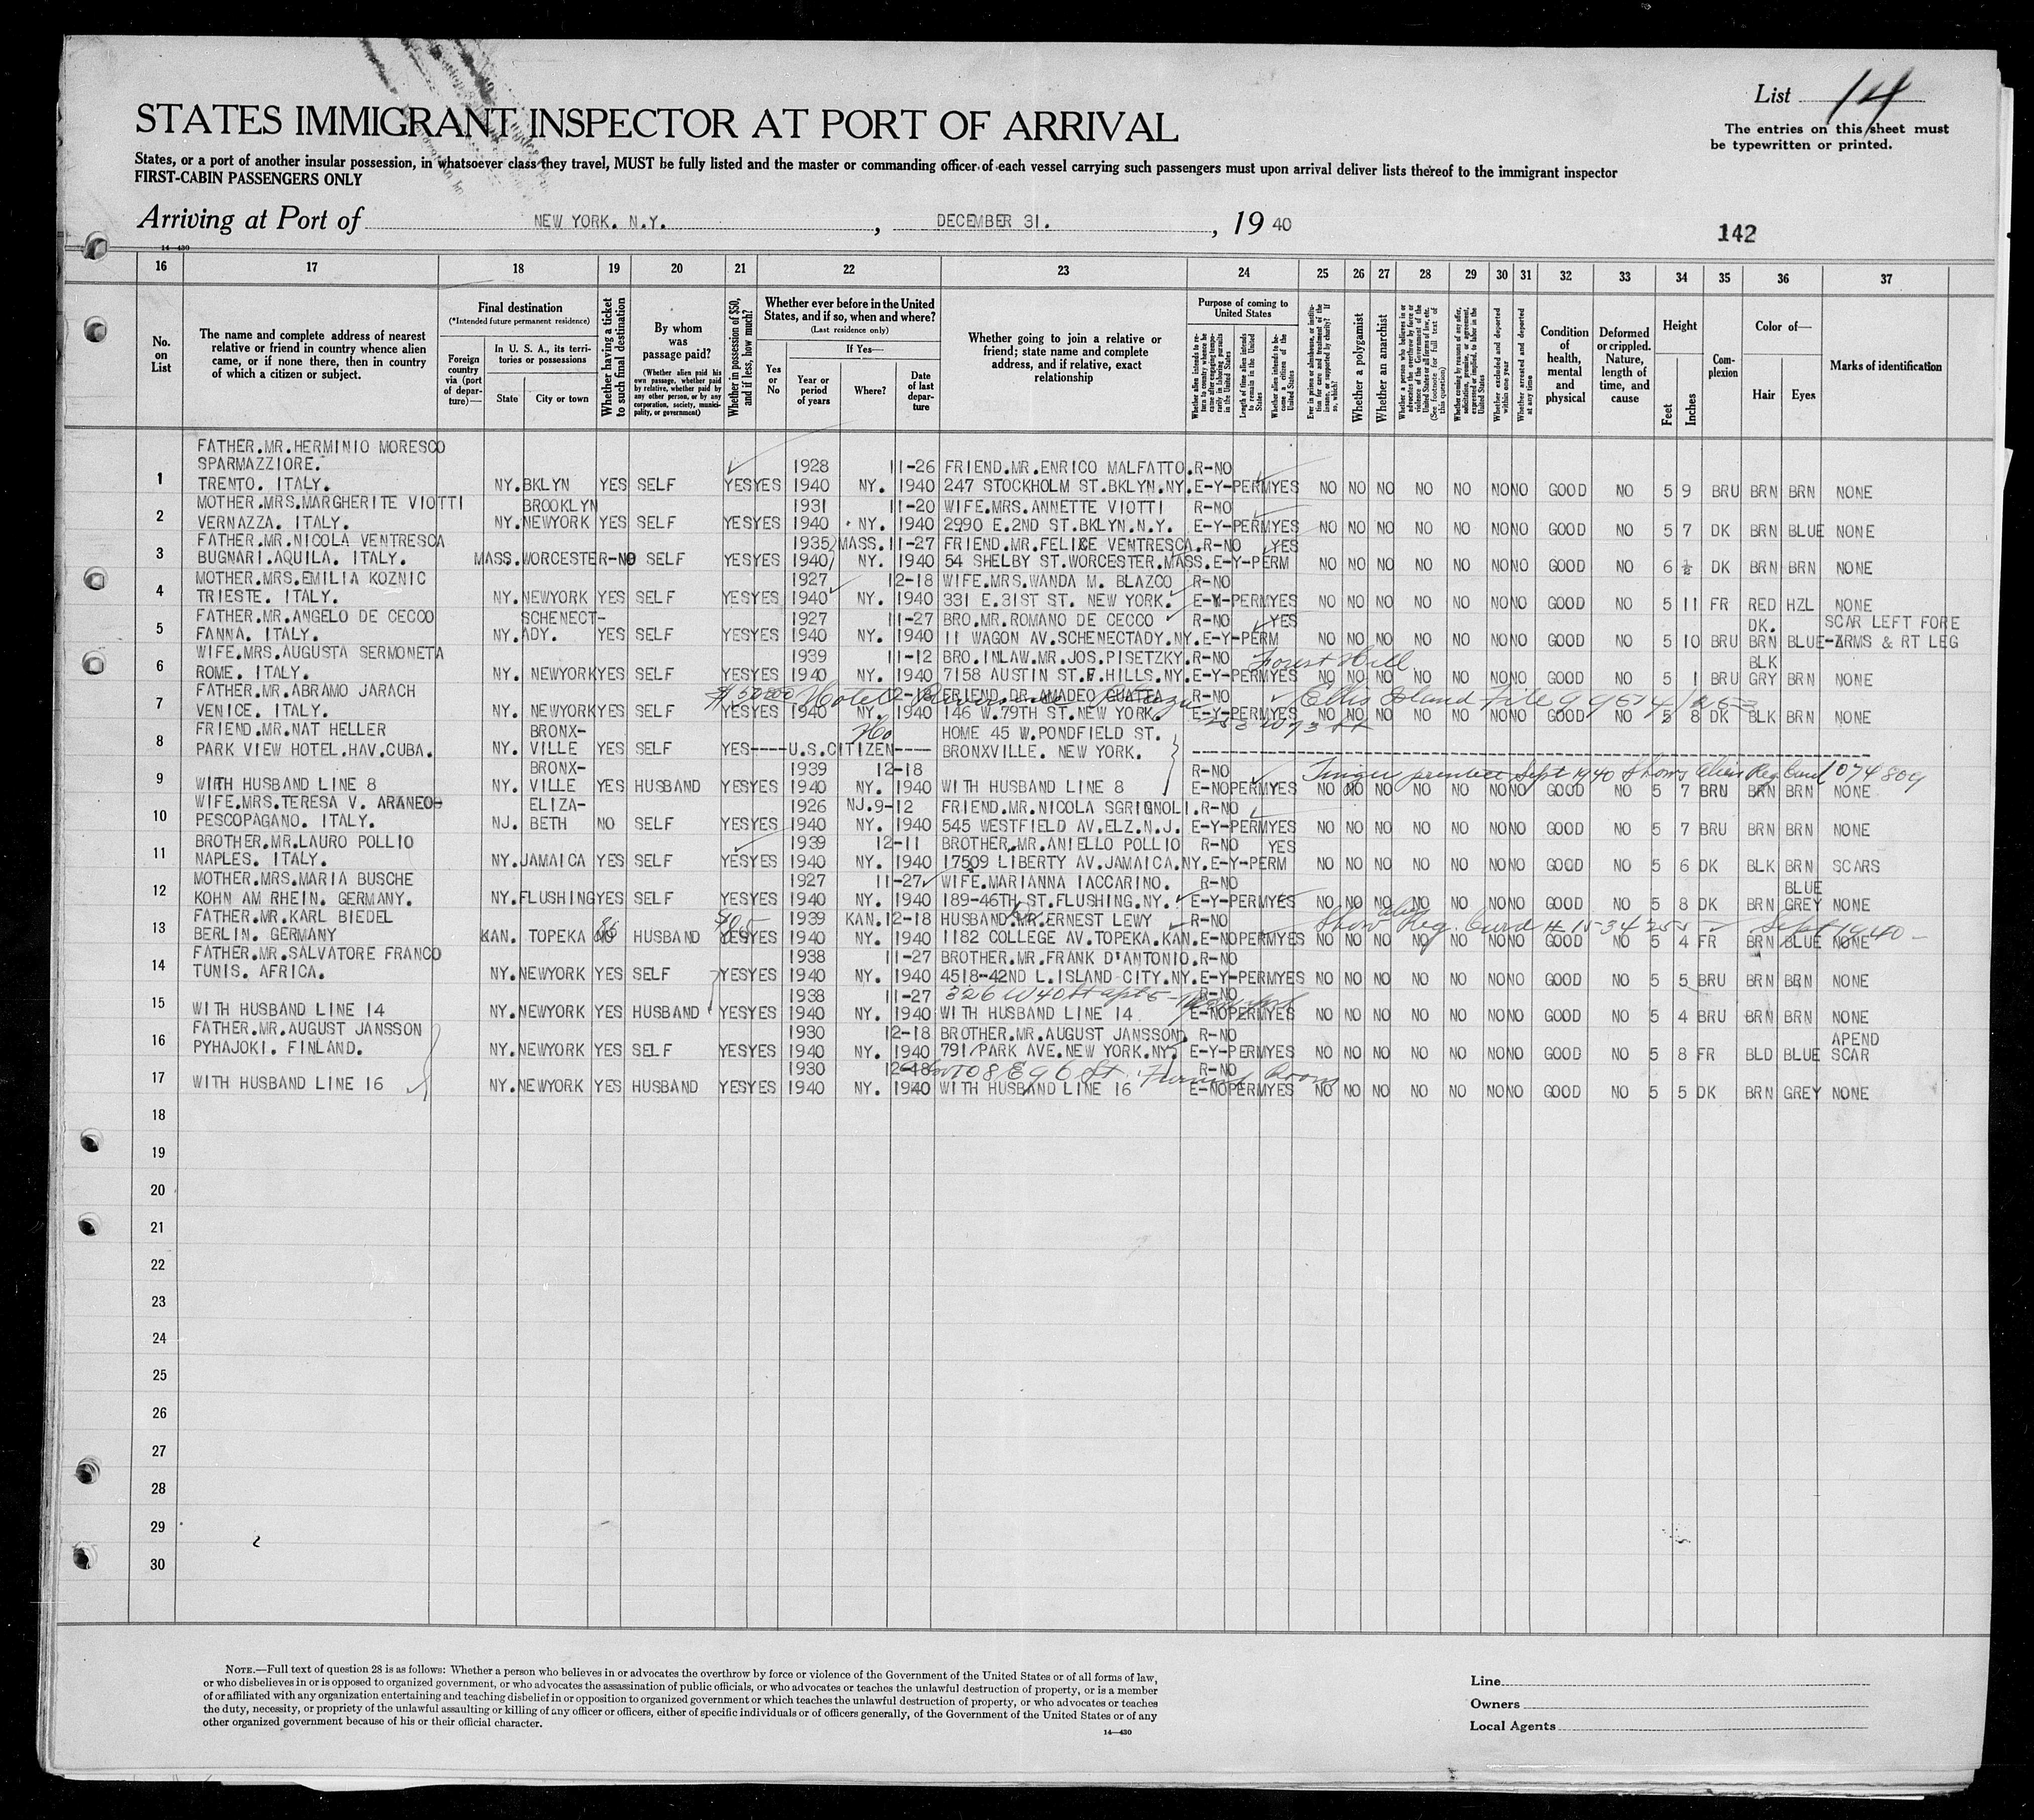 List 14
STATES IMMIGRANT INSPECTOR AT PORT OF ARRIVAL
The entries on this sheet must
be typewritten or printed.
States, or a port of another insular possession, in whatsoever class they travel, MUST be fully listed and the master or commanding officer of each vessel carrying such passengers must upon arrival deliver lists thereof to the immigrant inspector
FIRST-CABIN PASSENGERS ONLY
Arriving at Port of NEW YORK. N.Y. , DECEMBER 31. , 19 40
142
14—430
16 17 18 19 20 21 22 23 24 25 26 27 28 29 30 31 32 33 34 35 36 37
No. on List
The name and complete address of nearest relative or friend in country whence alien came, or if none there, then in country of which a citizen or subject.
Final destination
(*Intended future permanent residence)
Foreign country via (port of departure)—
In U. S. A., its territories or possessions
State City or town
Whether having a ticket to such final destination
By whom was passage paid?
(Whether alien paid his own passage, whether paid by relative, whether paid by any other person, or by any corporation, society, municipality, or government)
Whether in possession of $50, and if less, how much?
Whether ever before in the United States, and if so, when and where?
(Last residence only)
Yes or No
If Yes—
Year or period of years
Where?
Date of last departure
Whether going to join a relative or friend; state name and complete address, and if relative, exact relationship
Purpose of coming to United States
Whether alien intends to return to country whence he came after engaging temporarily in laboring pursuits in the United States
Length of time alien intends to remain in the United States
Whether alien intends to become a citizen of the United States
Ever in prison or almshouse, or institution for care and treatment of the insane, or supported by charity? If so, which?
Whether a polygamist
Whether an anarchist
Whether a person who believes in or advocates the overthrow by force or violence of the Government of the United States or all forms of law, etc. (See footnote for full text of this question)
Whether coming by reason of any offer, solicitation, promise, or agreement, expressed or implied, to labor in the United States
Whether excluded and deported within one year
Whether arrested and deported at any time
Condition of health, mental and physical
Deformed or crippled. Nature, length of time, and cause
Height
Feet Inches
Complexion
Color of—
Hair Eyes
Marks of identification
FATHER.MR.HERMINIO MORESCO
SPARMAZZIORE. 1928 11-26 FRIEND.MR.ENRICO MALFATTO. R-NO
1 TRENTO. ITALY. NY. BKLYN YES SELF YES YES 1940 NY. 1940 247 STOCKHOLM ST.BKLYN.NY. E-Y-PERM YES NO NO NO NO NO NO NO GOOD NO 5 9 BRU BRN BRN NONE
MOTHER.MRS.MARGHERITE VIOTTI BROOKLYN 1931 11-20 WIFE.MRS.ANNETTE VIOTTI R-NO
2 VERNAZZA. ITALY. NY. NEWYORK YES SELF YES YES 1940 NY. 1940 2990 E.2ND ST.BKLYN.N.Y. E-Y-PERM YES NO NO NO NO NO NO NO GOOD NO 5 7 DK BRN BLUE NONE
FATHER.MR.NICOLA VENTRESCA 1935 MASS. 11-27 FRIEND.MR.FELICE VENTRESCA. R-NO YES
3 BUGNARI.AQUILA. ITALY. MASS. WORCESTER R-NO SELF YES YES 1940 NY. 1940 54 SHELBY ST.WORCESTER.MASS. E-Y-PERM NO NO NO NO NO NO NO GOOD NO 6 ½ DK BRN BRN NONE
MOTHER.MRS.EMILIA KOZNIC 1927 12-18 WIFE.MRS.WANDA M. BLAZCO R-NO
4 TRIESTE. ITALY. NY. NEWYORK YES SELF YES YES 1940 NY. 1940 331 E.31ST ST. NEW YORK. E-Y-PERM YES NO NO NO NO NO NO NO GOOD NO 5 11 FR RED HZL NONE
FATHER.MR.ANGELO DE CECCO SCHENECT- 1927 11-27 BRO.MR.ROMANO DE CECCO R-NO YES DK. SCAR LEFT FORE
5 FANNA. ITALY. NY. ADY. YES SELF YES YES 1940 NY. 1940 11 WAGON AV.SCHENECTADY.NY. E-Y-PERM NO NO NO NO NO NO NO GOOD NO 5 10 BRU BRN BLUE-ARMS & RT LEG
WIFE.MRS.AUGUSTA SERMONETA 1939 11-12 BRO.INLAW.MR.JOS.PISETZKY. R-NO Forest Hill BLK
6 ROME. ITALY. NY. NEWYORK YES SELF YES YES 1940 NY. 1940 7158 AUSTIN ST.F.HILLS.NY. E-Y-PERM YES NO NO NO NO NO NO NO GOOD NO 5 1 BRU GRY BRN NONE
FATHER.MR.ABRAMO JARACH Hotel 12-18 FRIEND DR.AMADEO R-NO Ellis Island File 99574/
7 VENICE. ITALY. NY. NEWYORK YES SELF YES YES 1940 NY. 1940 146 W.79TH ST.NEW YORK. E-Y-PERM YES NO NO NO NO NO NO NO GOOD NO 5 8 DK BLK BRN NONE
253 W 73 St
FRIEND.MR.NAT HELLER BRONX- HOME 45 W.PONDFIELD ST.
8 PARK VIEW HOTEL.HAV.CUBA. NY. VILLE YES SELF YES----U.S.CITIZEN---- BRONXVILLE. NEW YORK.
BRONX- 1939 12-18 R-NO Finger printed Sept 1940 Shows Alien Reg Card 1074809
9 WITH HUSBAND LINE 8 NY. VILLE YES HUSBAND YES YES 1940 NY. 1940 WITH HUSBAND LINE 8 E-NO PERM YES NO NO NO NO NO NO NO GOOD NO 5 7 BRN BRN BRN NONE
WIFE.MRS.TERESA V. ARANEO ELIZA- 1926 NJ. 9-12 FRIEND.MR.NICOLA SGRIGNOLI. R-NO
10 PESCOPAGANO. ITALY. NJ. BETH NO SELF YES YES 1940 NY. 1940 545 WESTFIELD AV.ELZ.N.J. E-Y-PERM YES NO NO NO NO NO NO NO GOOD NO 5 7 BRU BRN BRN NONE
BROTHER.MR.LAURO POLLIO 1939 12-11 BROTHER.MR.ANIELLO POLLIO R-NO YES
11 NAPLES. ITALY. NY. JAMAICA YES SELF YES YES 1940 NY. 1940 17509 LIBERTY AV.JAMAICA.NY. E-Y-PERM NO NO NO NO NO NO NO GOOD NO 5 6 DK BLK BRN SCARS
MOTHER.MRS.MARIA BUSCHE 1927 11-27 WIFE.MARIANNA IACCARINO. R-NO BLUE
12 KOHN AM RHEIN. GERMANY. NY. FLUSHING YES SELF YES YES 1940 NY. 1940 189-46TH ST.FLUSHING.NY. E-Y-PERM YES NO NO NO NO NO NO NO GOOD NO 5 8 DK BRN GREY NONE
FATHER.MR.KARL BIEDEL 1939 KAN. 12-18 HUSBAND.MR.ERNEST LEWY R-NO Show Alien Reg. Card # Sept 1940
13 BERLIN. GERMANY KAN. TOPEKA NO HUSBAND YES YES 1940 NY. 1940 1182 COLLEGE AV.TOPEKA.KAN. E-NO PERM YES NO NO NO NO NO NO NO GOOD NO 5 4 FR BRN BLUE NONE
FATHER.MR.SALVATORE FRANCO 1938 11-27 BROTHER.MR.FRANK D'ANTONIO. R-NO
14 TUNIS. AFRICA. NY. NEWYORK YES SELF YES YES 1940 NY. 1940 4518-42ND L.ISLAND CITY.NY. E-Y-PERM YES NO NO NO NO NO NO NO GOOD NO 5 5 BRU BRN BRN NONE
1938 11-27 326 W 40 St apt 5 R-NO
15 WITH HUSBAND LINE 14 NY. NEWYORK YES HUSBAND YES YES 1940 NY. 1940 WITH HUSBAND LINE 14 E-NO PERM YES NO NO NO NO NO NO NO GOOD NO 5 4 BRU BRN BRN NONE
FATHER.MR.AUGUST JANSSON 1930 12-18 BROTHER.MR.AUGUST JANSSON. R-NO APEND
16 PYHAJOKI. FINLAND. NY. NEWYORK YES SELF YES YES 1940 NY. 1940 791 PARK AVE.NEW YORK.NY. E-Y-PERM YES NO NO NO NO NO NO NO GOOD NO 5 8 FR BLD BLUE SCAR
1930 12-18 108 E 96 St. Furnished Rooms R-NO
17 WITH HUSBAND LINE 16 NY. NEWYORK YES HUSBAND YES YES 1940 NY. 1940 WITH HUSBAND LINE 16 E-NO PERM YES NO NO NO NO NO NO NO GOOD NO 5 5 DK BRN GREY NONE
18
19
20
21
22
23
24
25
26
27
28
29
30
NOTE.—Full text of question 28 is as follows: Whether a person who believes in or advocates the overthrow by force or violence of the Government of the United States or of all forms of law,
or who disbelieves in or is opposed to organized government, or who advocates the assassination of public officials, or who advocates or teaches the unlawful destruction of property, or is a member
of or affiliated with any organization entertaining and teaching disbelief in or opposition to organized government or which teaches the unlawful destruction of property, or who advocates or teaches
the duty, necessity, or propriety of the unlawful assaulting or killing of any officer or officers, either of specific individuals or of officers generally, of the Government of the United States or of any
other organized government because of his or their official character.
14—430
Line
Owners
Local Agents